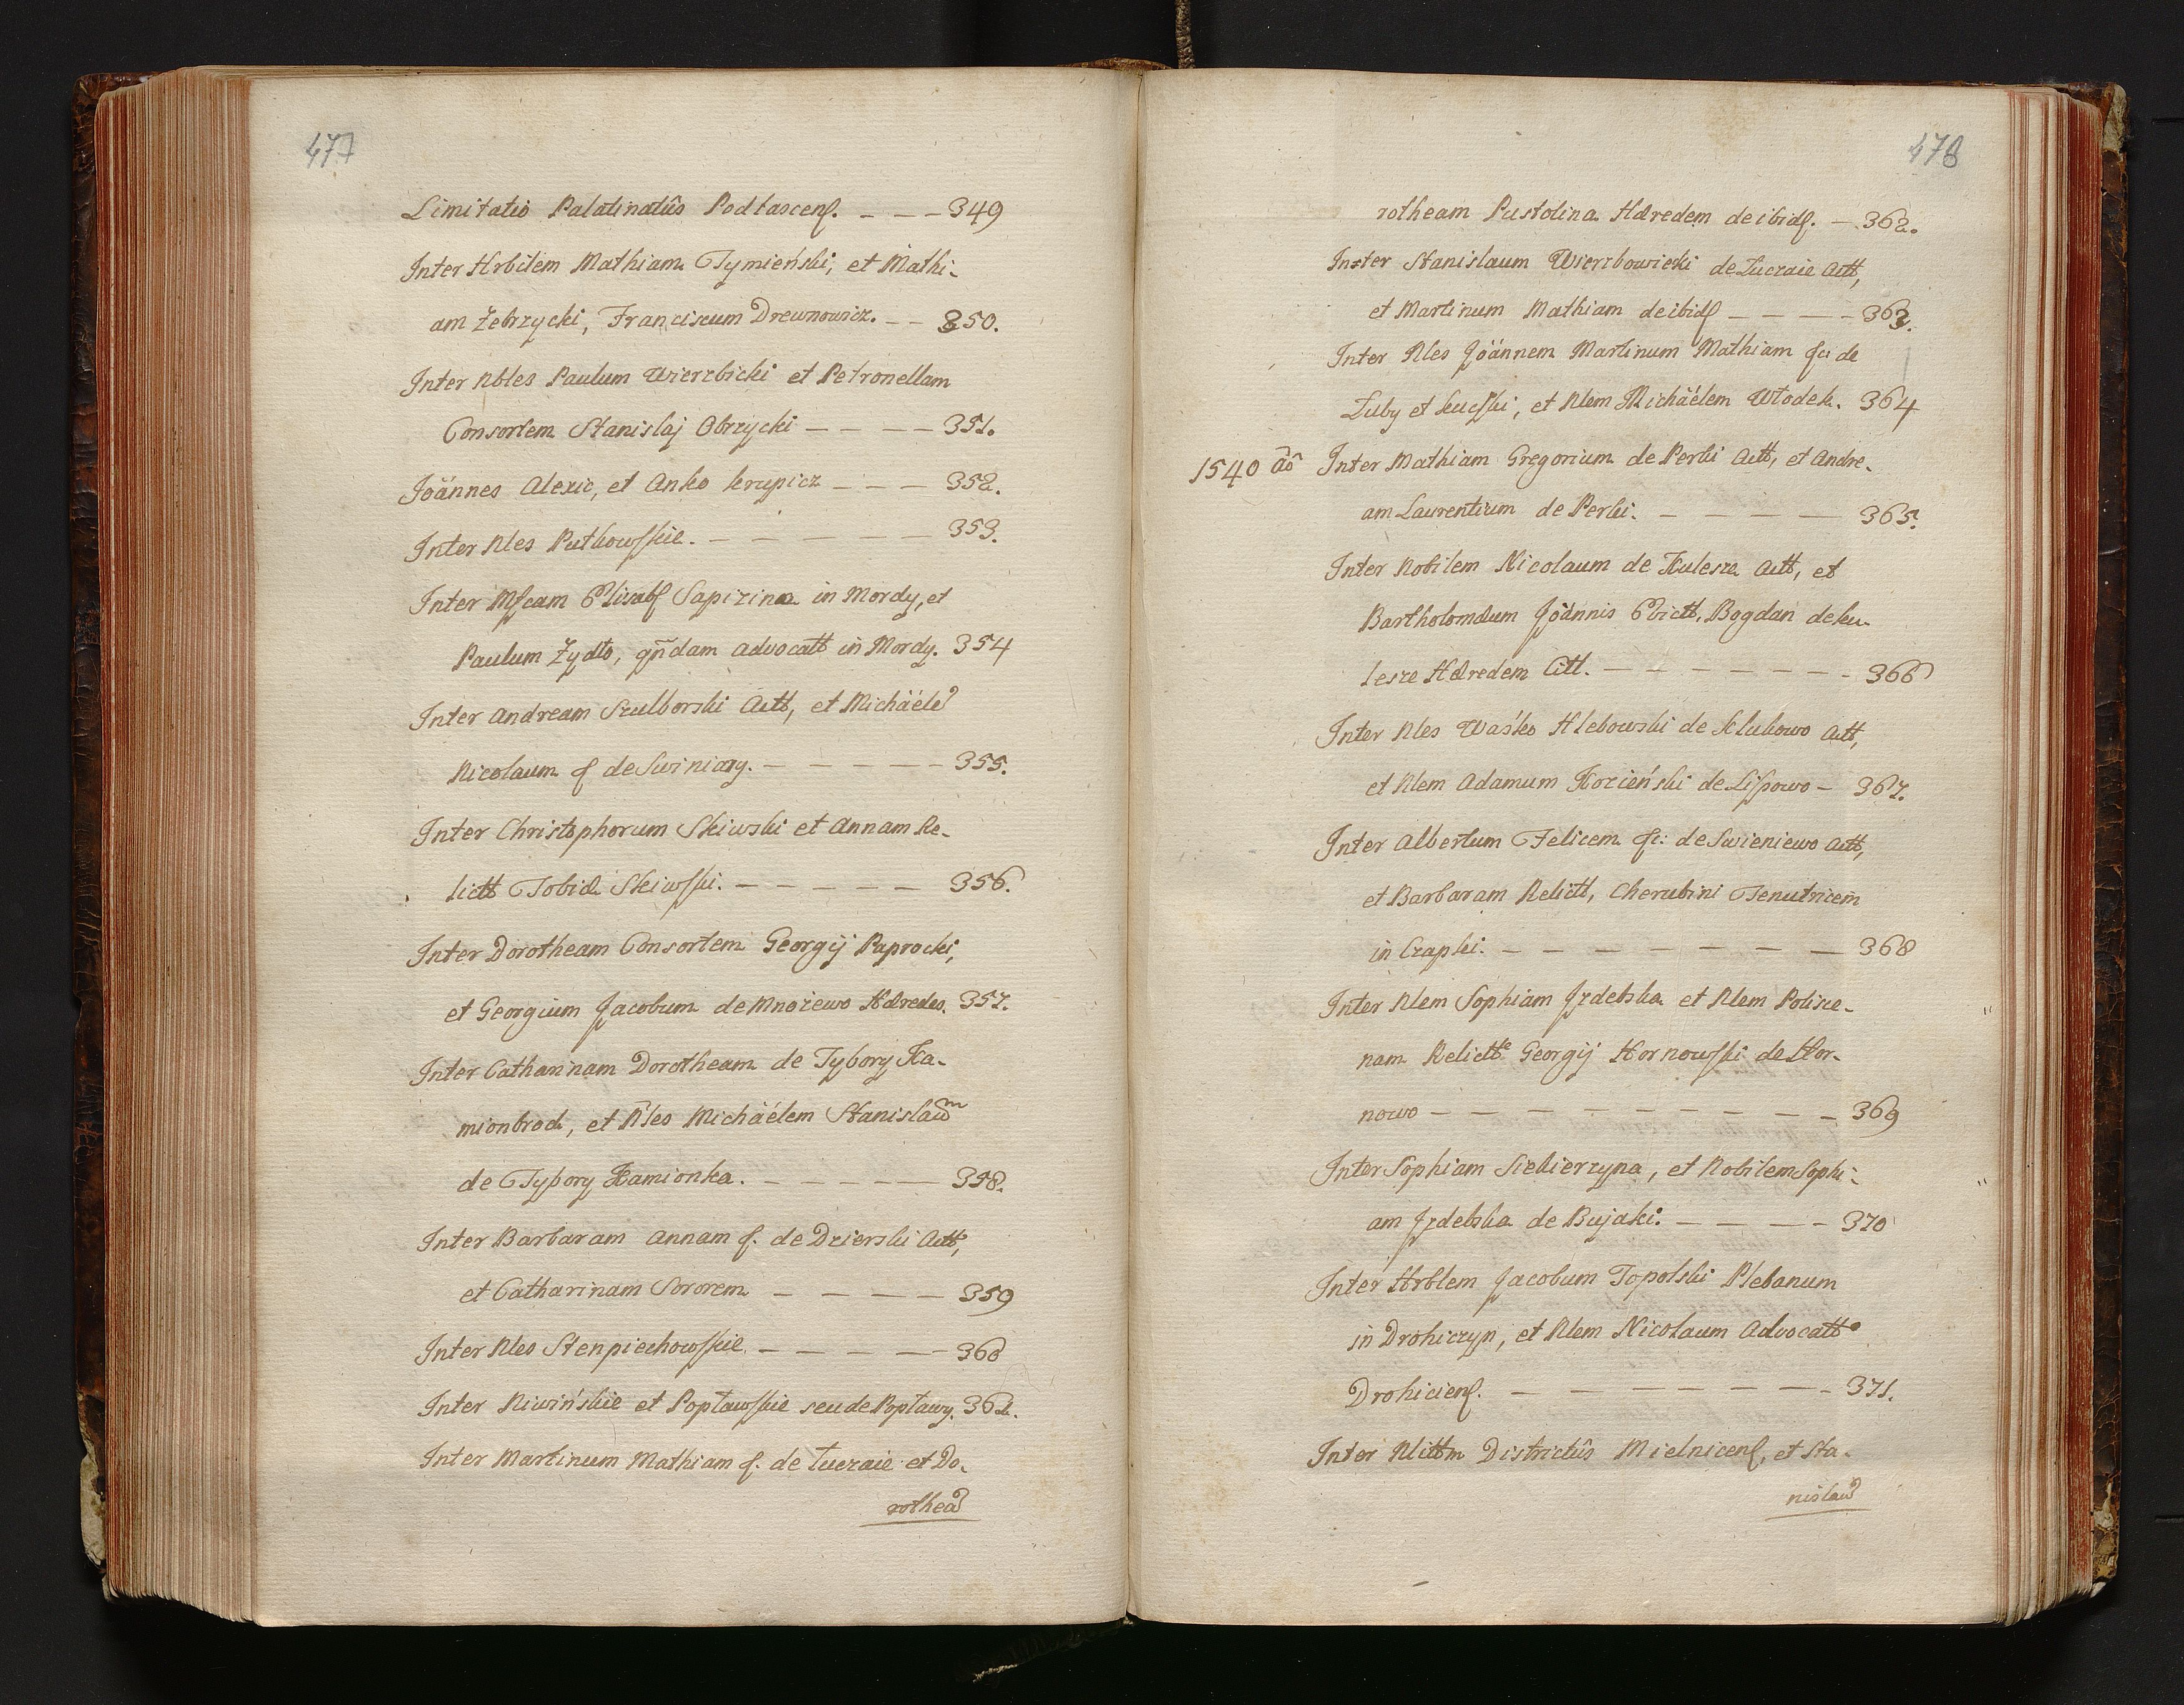 477
Limitatio Palatinatûs Podłascens. — — — 349
Inter Hrbilem Mathiam Tymieński, et Mathi-
am Żebrzycki, Franciscum Drewnowicz. — — 350.
Inter Nbles Paulum Wierzbicki et Petronellam
Consortem Stanislaj Obrzycki — — — — 351.
Joännes Alexic, et Anko Krupicz — — — 352.
Inter Nles Putkowskie. — — — — — — 353.
Inter Mfcam Elisabs Sapizina in Mordy, et
Paulum Żydło, qñdam Advocatt in Mordy. 354
Inter Andream Szulborski Actt, et Michäéle
Nicolaum f de Swiniary. — — — — — 355.
Inter Christophorum Skiwski et Annam Re-
lictt Tobiæ Skiwski. — — — — — 356.
Inter Dorotheam Consortem Georgij Paprocki,
et Georgium Jacobum de Mnożewo Hæredes. 357.
Inter Catharinam Dorotheam de Tybory Ka-
mionbrod, et Nles Michäélem Stanislaum
de Tybory Kamionka. — — — — — 358.
Inter Barbaram Annam f. de Dzierski Actt,
et Catharinam Sororem — — — — — 359
Inter Nles Stenpiechowskie. — — — — — 360
Inter Niwińskie et Popławskie seu de Popławy. 361.
Inter Martinum Mathiam f. de Łuczaie et Do-
rotheã
478
rotheam Pustolina Hæredem de ibids. — 362.
Inter Stanislaum Wierzbowicki de Łuczaie Actt,
et Martinum Mathiam de ibids — — — — 363.
Inter Nles Joännem Martinum Mathiam fr: de
Łuby et Kucski, et Nlem Michäélem Włodek. 364
1540 aô Inter Mathiam Gregorium de Perki Actt, et Andre-
am Laurentium de Perki. — — — — — 365.
Inter Nobilem Nicolaum de Kulesza Actt, et
Bartholomæum Joännis Evictt, Bogdan de Ku-
lesze Hæredem Citt. — — — — — — — 366
Inter Nles Waśko Hlebowski de Klukowo Actt,
et Nlem Adamum Kozieński de Lisowo — 367.
Inter Albertum Felicem fr: de Swieniewo Actt,
et Barbaram Relictt, Cherubini Tenutricem
in Czapki. — — — — — — — — 368
Inter Nlem Sophiam Jzdebska et Nlem Polixe-
nam Relictt Georgij Hornowski de Hor-
nowo — — — — — — — — — — 369
Inter Sophiam Siekierzyna, et Nobilem Sophi-
am Jzdebska de Bujaki. — — — — 370
Inter Hrblem Jacobum Topolski Plebanum
in Drohiczyn, et Nlem Nicolaum Advocatt
Drohiciens. — — — — — — — 371.
Inter Nlittm Districtûs Mielnicens, et Sta-
nislaũ